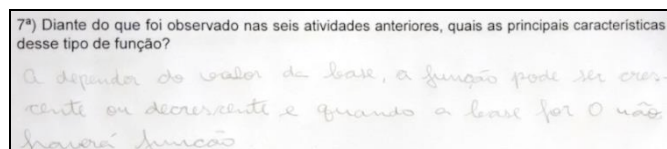 7ª) Diante do que foi observado nas seis atividades anteriores, quais as principais características
desse tipo de função?
a depender do valor da base, a função pode ser cres-
cente ou decrescente e quando a base for 0 não
haverá função